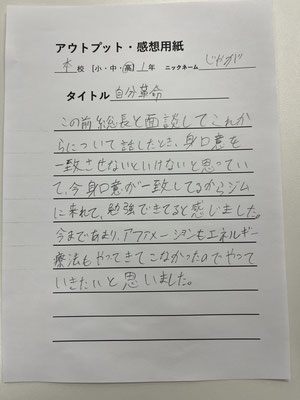 アウトプット・感想用紙
本校 [小・中・高] 1年 ニックネーム じゃが
タイトル 自分革命
この前総長と面談してこれか
らについて話したとき、身口意を
一致させないといけないと思ってい
て、今身口意が一致してるからジム
に来れて、勉強できてると感じました。
今まであまり、アファメーションもエネルギー
療法もやってきてこなかったのでやって
いきたいと思いました。